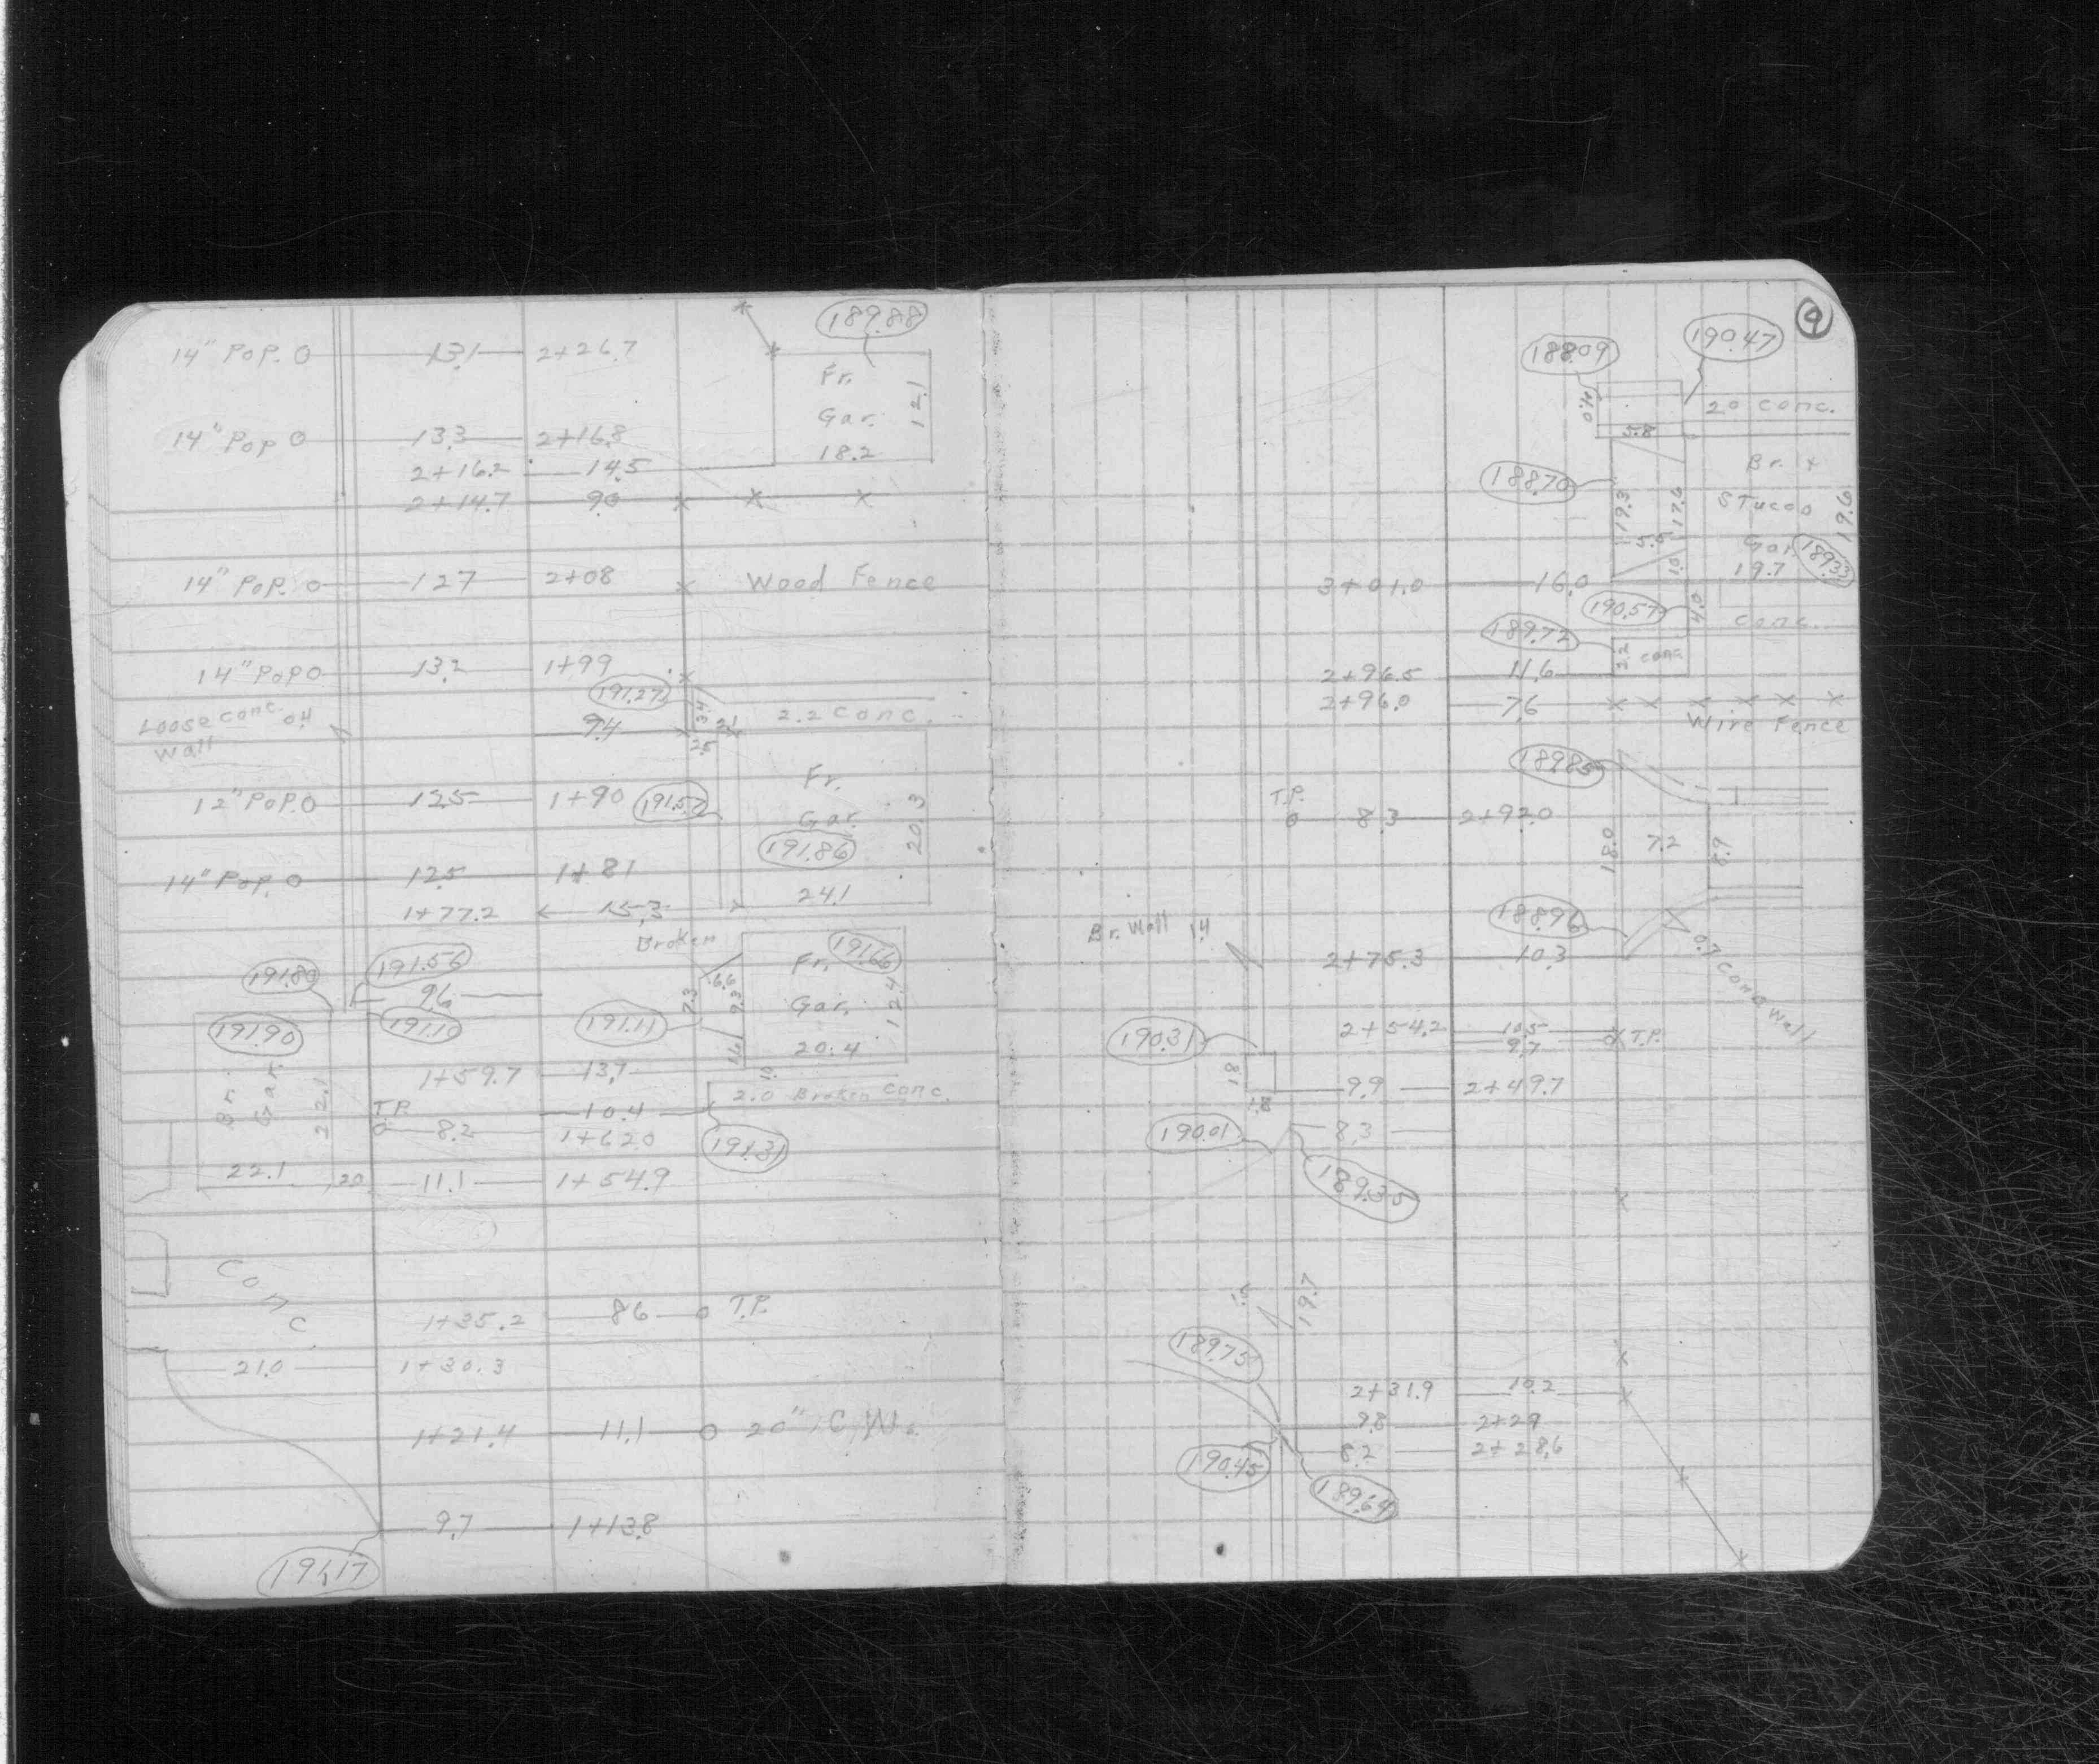 189.88
14" Pop. O 13.1 2+26.7
Fr.
Gar. 12.1
14" Pop O 13.3 2+16.8 18.2
2+16.2 14.5
2+14.7 9.0
14" Pop. O 12.7 2+08 Wood Fence
14" Pop O 13.2 1+99
191.27
Loose conc. 0.4 9.4 3.4 2.1 2.2 conc.
Wall 2.5
Fr.
12" Pop. O 12.5 1+90 191.57
Gar. 20.3
191.86
14" Pop. O 12.5 1+81 24.1
1+77.2 15.3
Broken
191.80 191.56 Fr. 191.66
9.6 6.6
7.3 9.3 Gar. 12.4
191.90 191.10 191.11
1.6 20.4
Br. Gar. 22.1 1+59.7 13.9
2.0 Broken conc.
T.P. 10.4
O 8.2 1+62.0 191.31
22.1 2.0 11.1 1+54.9
Conc
1+35.2 8.6 O T.P.
21.0 1+30.3
1+21.4 11.1 O 20"
9.7 1+13.8
191.17
9
188.09 190.47
4.0 2.0 conc.
5.8
188.70 Br. &
19.3 17.6 Stucco 19.6
Gar. 189.33
3+01.0 16.0 19.7
190.57 4.0
189.72 conc.
2.2 conc.
2+96.5 11.6
2+96.0 7.6
Wire Fence
189.85
T.P.
O 8.3 2+92.0
18.0 7.2 8.9
188.96
Br. Wall 1.4
2+75.3 10.3 0.7 conc wall
190.31 2+54.2 10.5 T.P.
9.7
1.8 9.9 2+49.7
1.8
190.01 8.3
189.35
19.7
189.75
2+31.9 10.2
9.8 2+29
190.45 8.2 2+28.6
189.64